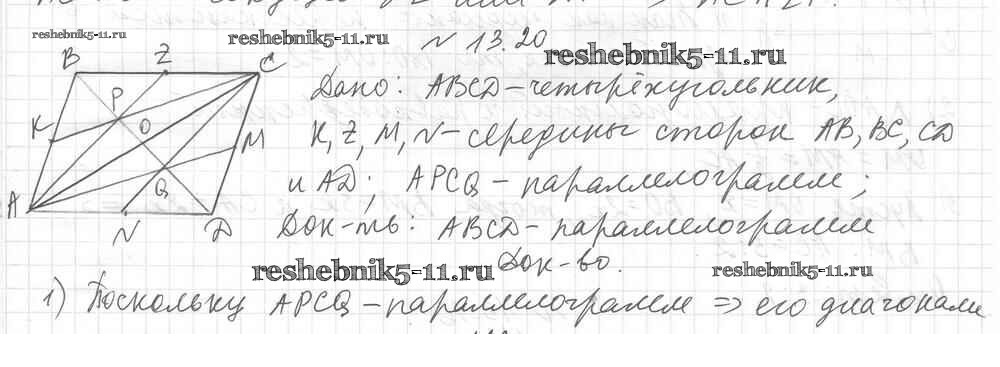 № 13.20
reshebnik5-11.ru
reshebnik5-11.ru
reshebnik5-11.ru
B Z C
P
K O M
Q
A N D
Дано: ABCD – четырёхугольник,
K, Z, M, N – середины сторон AB, BC, CD
и AD; APCQ – параллелограмм;
Док-ть: ABCD – параллелограмм
Док-во.
reshebnik5-11.ru
reshebnik5-11.ru
1) Поскольку APCQ – параллелограмм => его диагонали